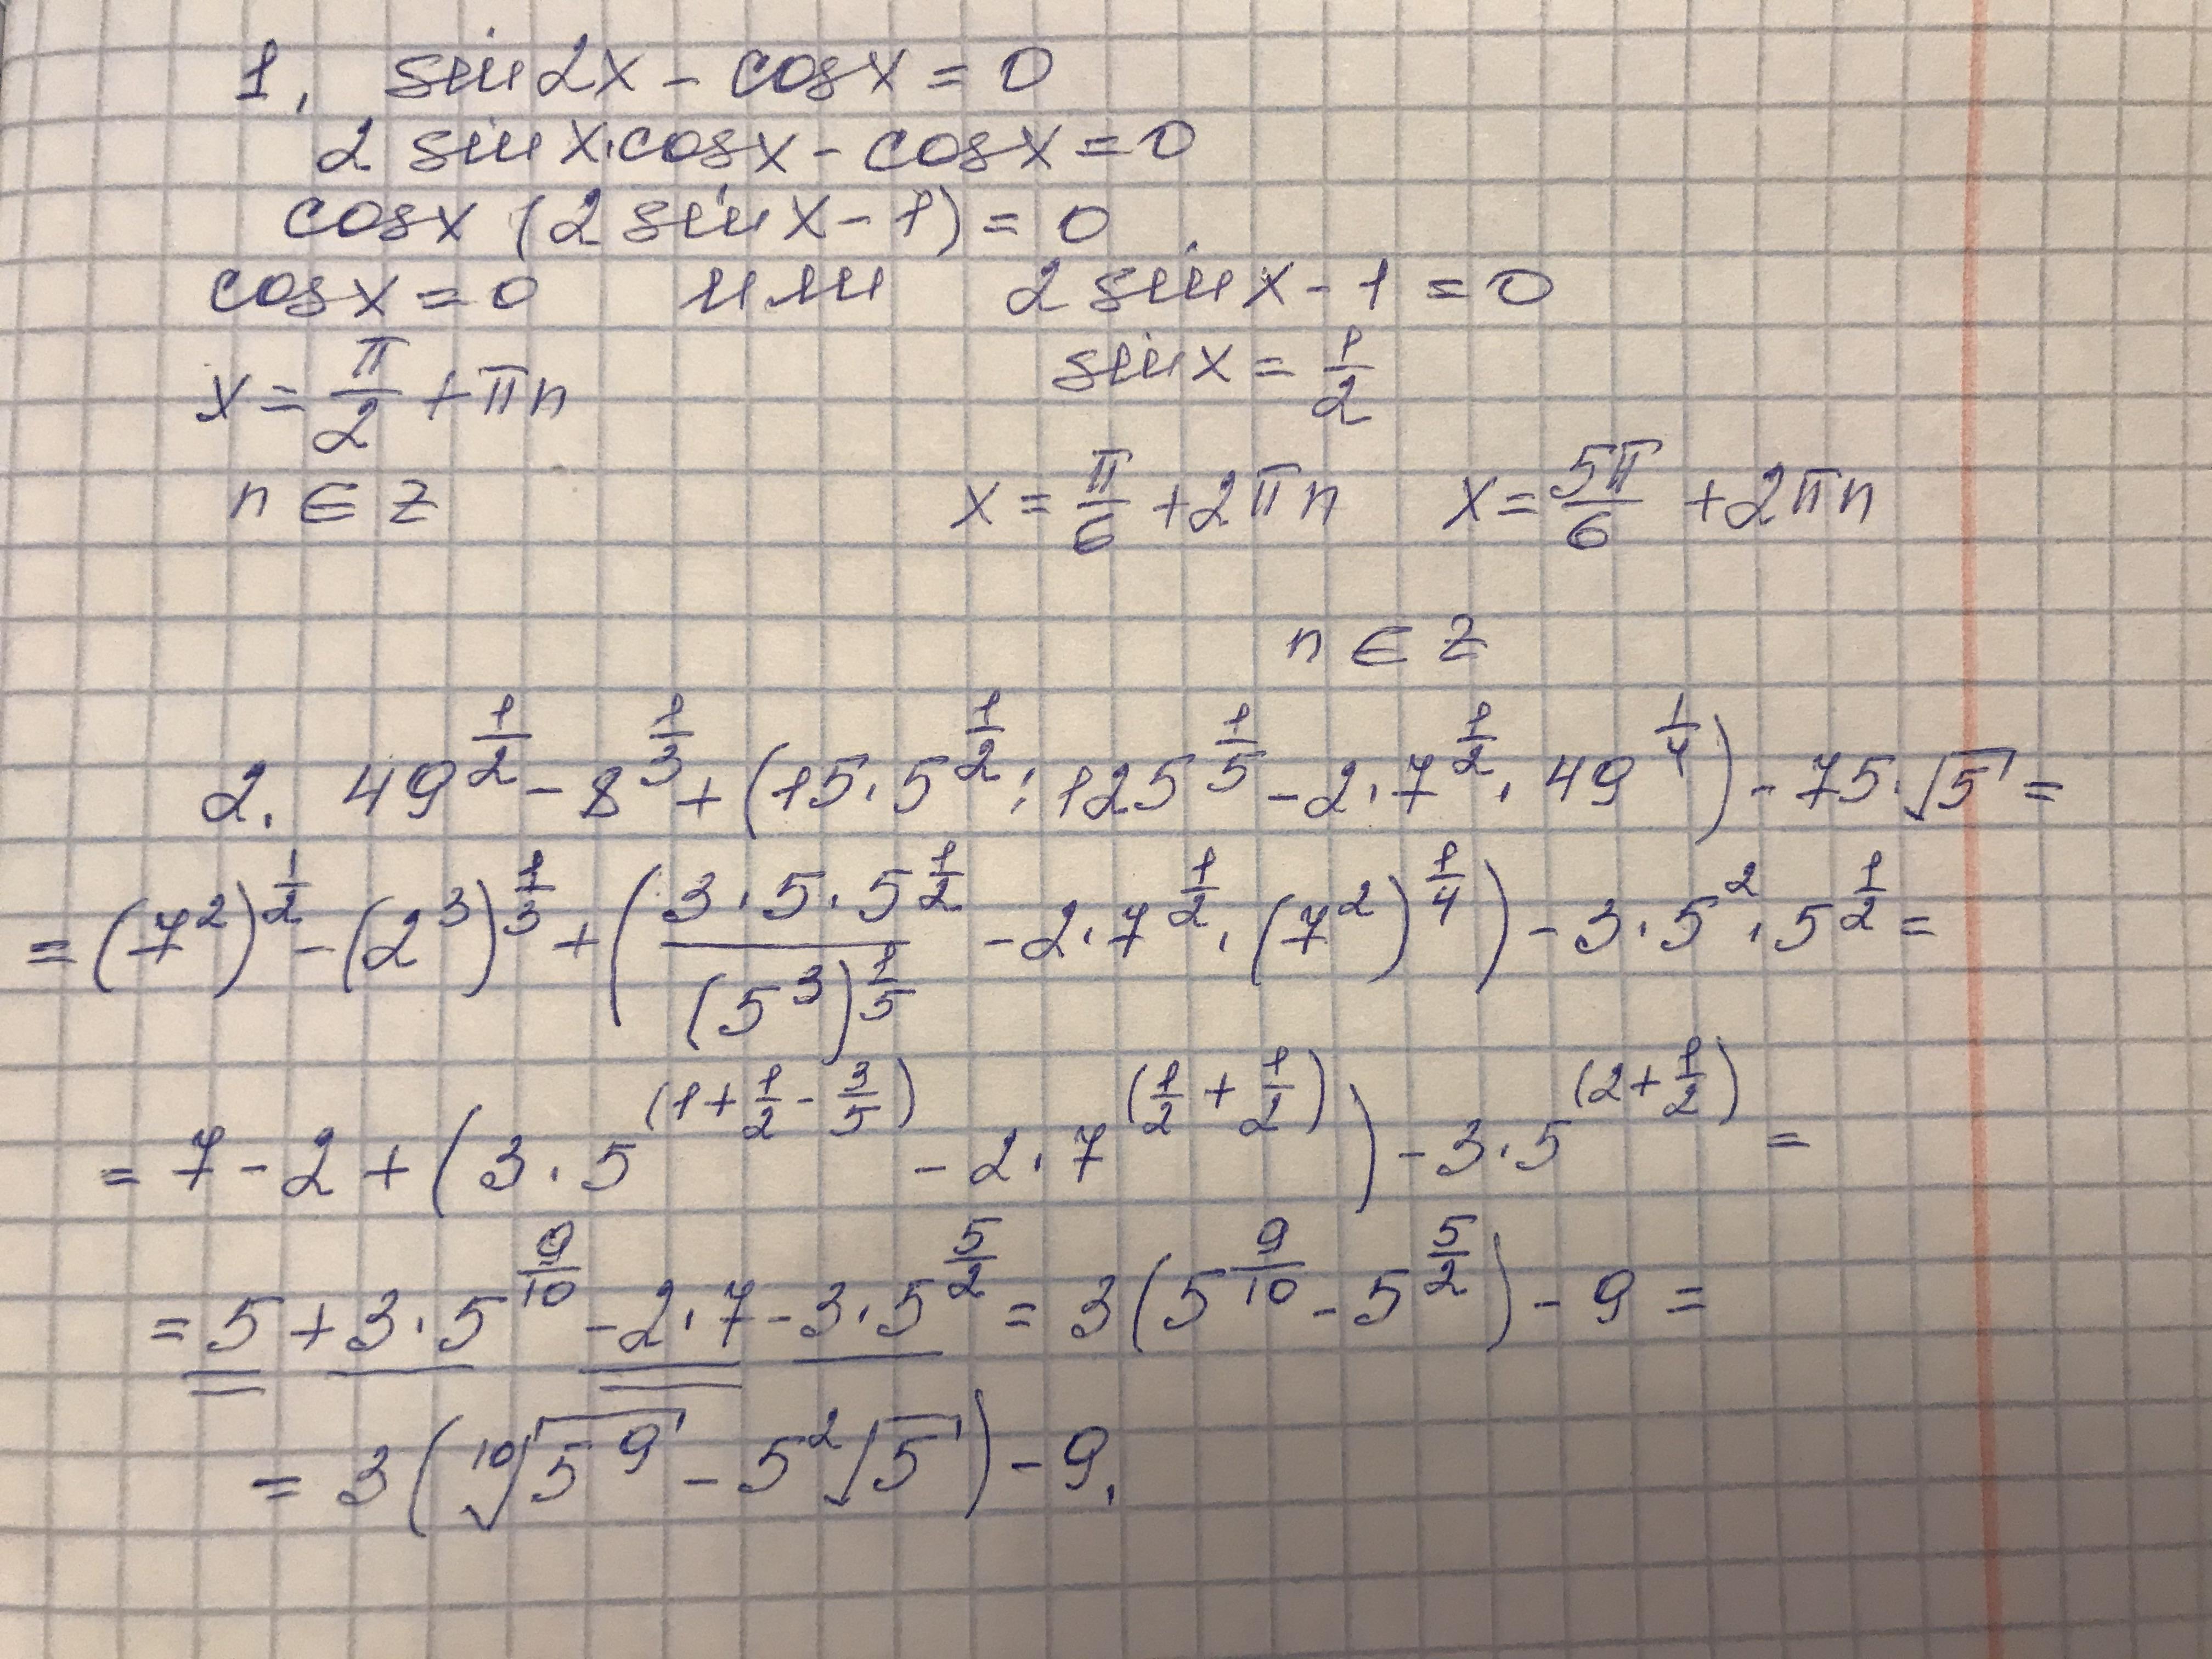 1. sin2x - cosx = 0
2 sinx·cosx - cosx = 0
cosx (2 sinx - 1) = 0
cosx = 0 или 2 sinx - 1 = 0
sinx = 1/2
x = π/2 + πn
n ∈ Z
x = π/6 + 2πn x = 5π/6 + 2πn
n ∈ Z
2. 49^(1/2) - 8^(1/3) + (15·5^(1/2) : 125^(1/5) - 2·7^(1/2)·49^(1/4)) - 75·√5 =
= (7²)^(1/2) - (2³)^(1/3) + (3·5·5^(1/2) / (5³)^(1/5) - 2·7^(1/2)·(7²)^(1/4)) - 3·5²·5^(1/2) =
= 7 - 2 + (3·5^(1 + 1/2 - 3/5) - 2·7^(1/2 + 1/2)) - 3·5^(2 + 1/2) =
= 5 + 3·5^(9/10) - 2·7 - 3·5^(5/2) = 3(5^(9/10) - 5^(5/2)) - 9 =
= 3(¹⁰√5⁹ - 5²√5) - 9.